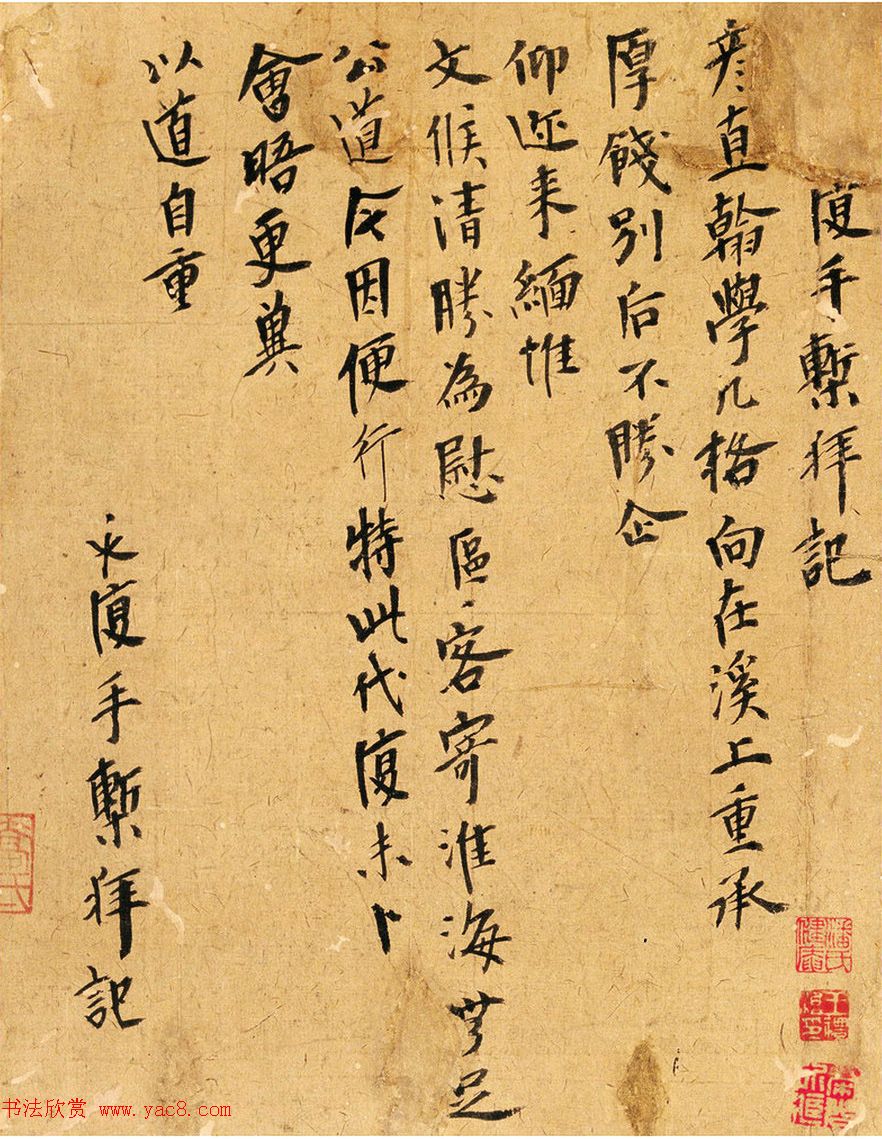 復手槧拜記
彦直翰學几格向在溪上重承
厚餞別后不勝企
仰迩来緬惟
文候清勝為慰區〻客寄淮海無足
公道今因便行特此代復未卜
會晤更冀
以道自重
永復手槧拜記
书法欣赏 www.yac8.com